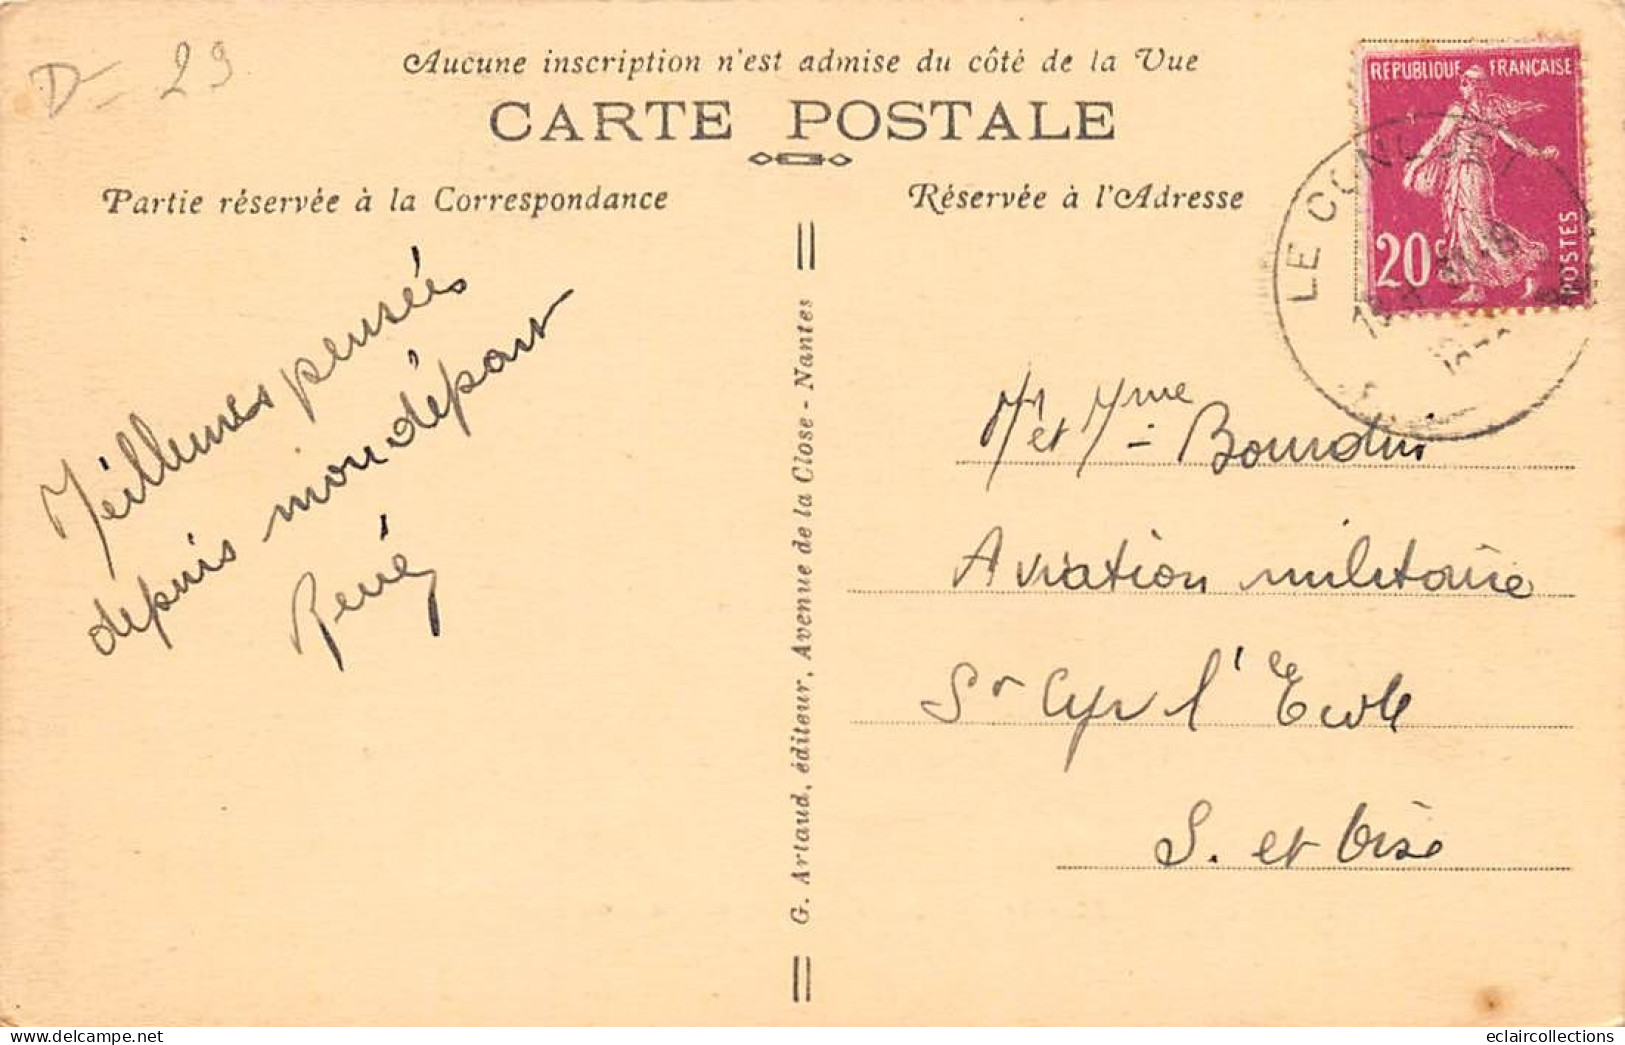 D- 29
Aucune inscription n'est admise du côté de la Vue
CARTE POSTALE
Partie réservée à la Correspondance
Réservée à l'Adresse
RÉPUBLIQUE FRANÇAISE
20c
POSTES
LE CONQUET
Meilleures pensées
depuis mon départ
René
G. Artaud, éditeur, Avenue de la Close - Nantes
Mr et Mme Bourdin
Aviation militaire
St Cyr l'Ecole
S. et Oise
www.delcampe.net
eclaircollections